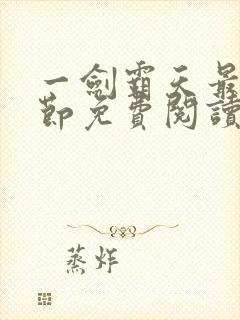 一劍霸天最
節免費閱讀
蒸炸